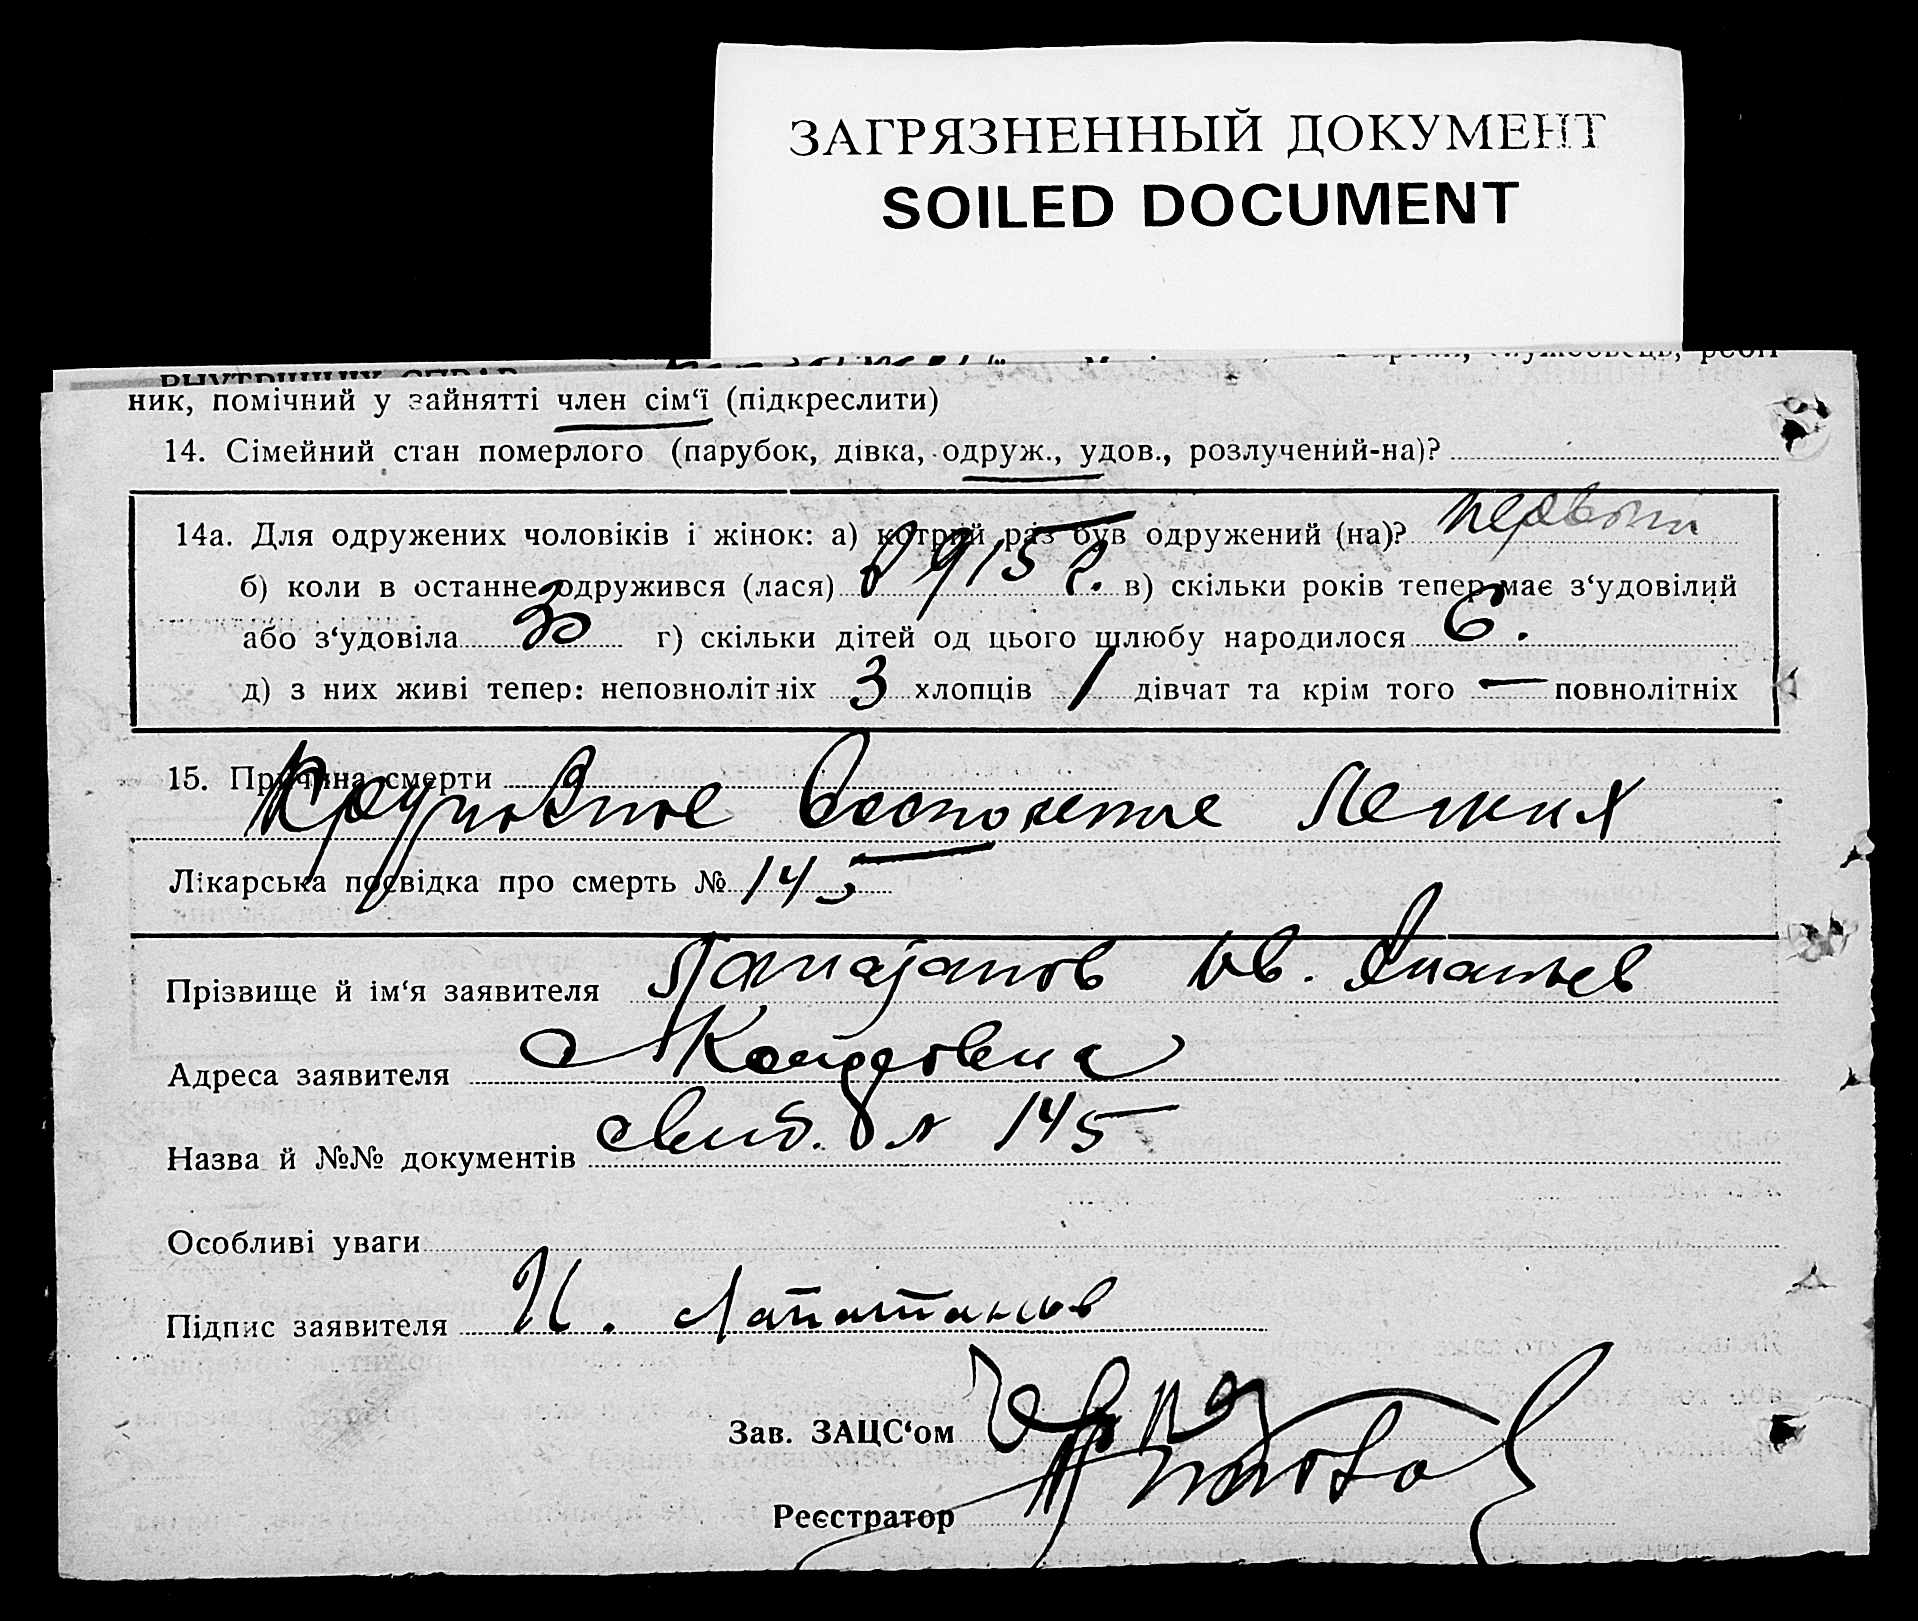 ЗАГРЯЗНЕННЫЙ ДОКУМЕНТ
SOILED DOCUMENT
ник, помічний у зайнятті член сім‘ї (підкреслити)
14. Сімейний стан померлого (парубок, дівка, одруж., удов., розлучений-на)?
14а. Для одружених чоловіків і жінок: а) котрий раз був одружений (на)? первый
б) коли в останнє одружився (лася) в 1915 г. в) скільки років тепер має з‘удовілий
або з‘удовіла 30 г) скільки дітей од цього шлюбу народилося 6.
д) з них живі тепер: неповнолітніх 3 хлопців 1 дівчат та крім того — повнолітніх
15. Причина смерти
Крупозное Воспаление Легких
Лікарська посвідка про смерть № 145
Прізвище й ім‘я заявителя Ив.
Адреса заявителя
Назва й №№ документів № 145
Особливі уваги
Підпис заявителя И.
Зав. ЗАЦС‘ом
Реєстратор